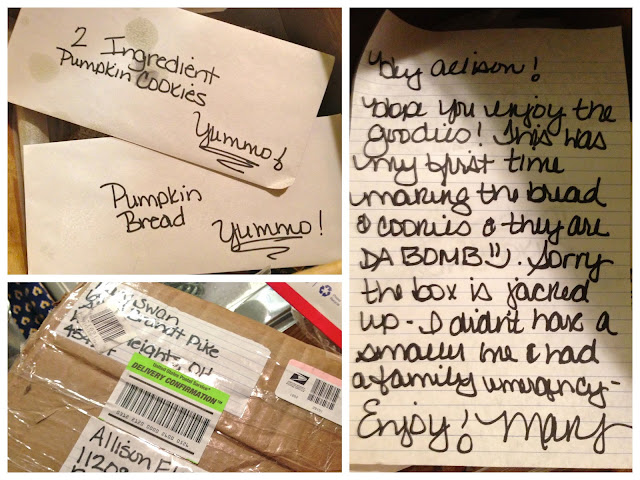 2 Ingredient
Pumpkin Cookies
Yummo!
Pumpkin
Bread
Yummo!
swan
Pike
454
eights, OH
United States Postal Service
DELIVERY CONFIRMATION™
Allison
11208
Hey Allison!
Hope you enjoy the
goodies! This was
my first time
making the bread
& cookies & they are
DA BOMB. Sorry
the box is jacked
up - I didn't have a
smaller one & had
a family emergency -
Enjoy! Mary